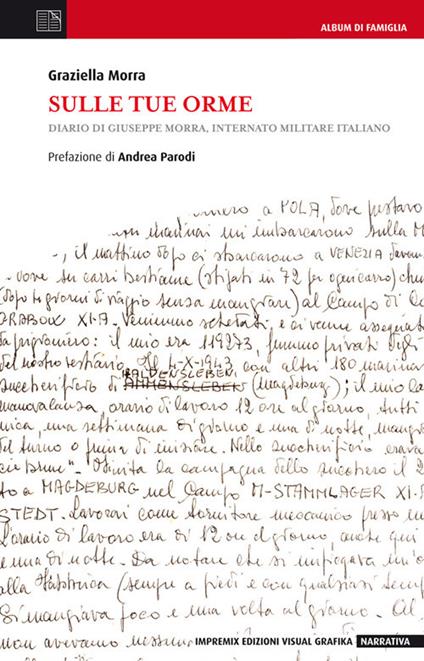 ALBUM DI FAMIGLIA
Graziella Morra
SULLE TUE ORME
DIARIO DI GIUSEPPE MORRA, INTERNATO MILITARE ITALIANO
Prefazione di Andrea Parodi
a POLA, dove
marinai mi imbarcarono sulla M
, il mattino dopo ci sbarcarono a VENEZIA
dove su carri bestiame (stipati in 72 per ogni carro)
(dopo 10 giorni di viaggio senza mangiare) al Campo di
GRABOW XI-A. Venimmo schedati e ci venne assegnato
da prigioniero: il mio era 119273, fummo privati degli
del nostro vestiario. Il 4-X-1943 con altri 180 marinai
HALDENSLEBEN
zuccherificio di AMMENSLEBEN (Magdeburg); il mio la
manovalanza, orario di lavoro 12 ore al giorno, tutti
una settimana di giorno e una di notte,
del turno o prima di iniziare. Nello zuccherificio
Finita la campagna dello zucchero il 2
to a MAGDEBURG nel Campo M-STAMMLAGER XI-
STEDT. Lavorai come tornitore meccanico presso
L'orario di lavoro era di 12 ore al giorno, anche qui
e una di notte. Da notare che si impiegava un'o
alla fabbrica (sempre a piedi e con qualsiasi temp
Si mangiava poco e una volta al giorno.
non avevamo
IMPREMIX EDIZIONI VISUAL GRAFIKA NARRATIVA